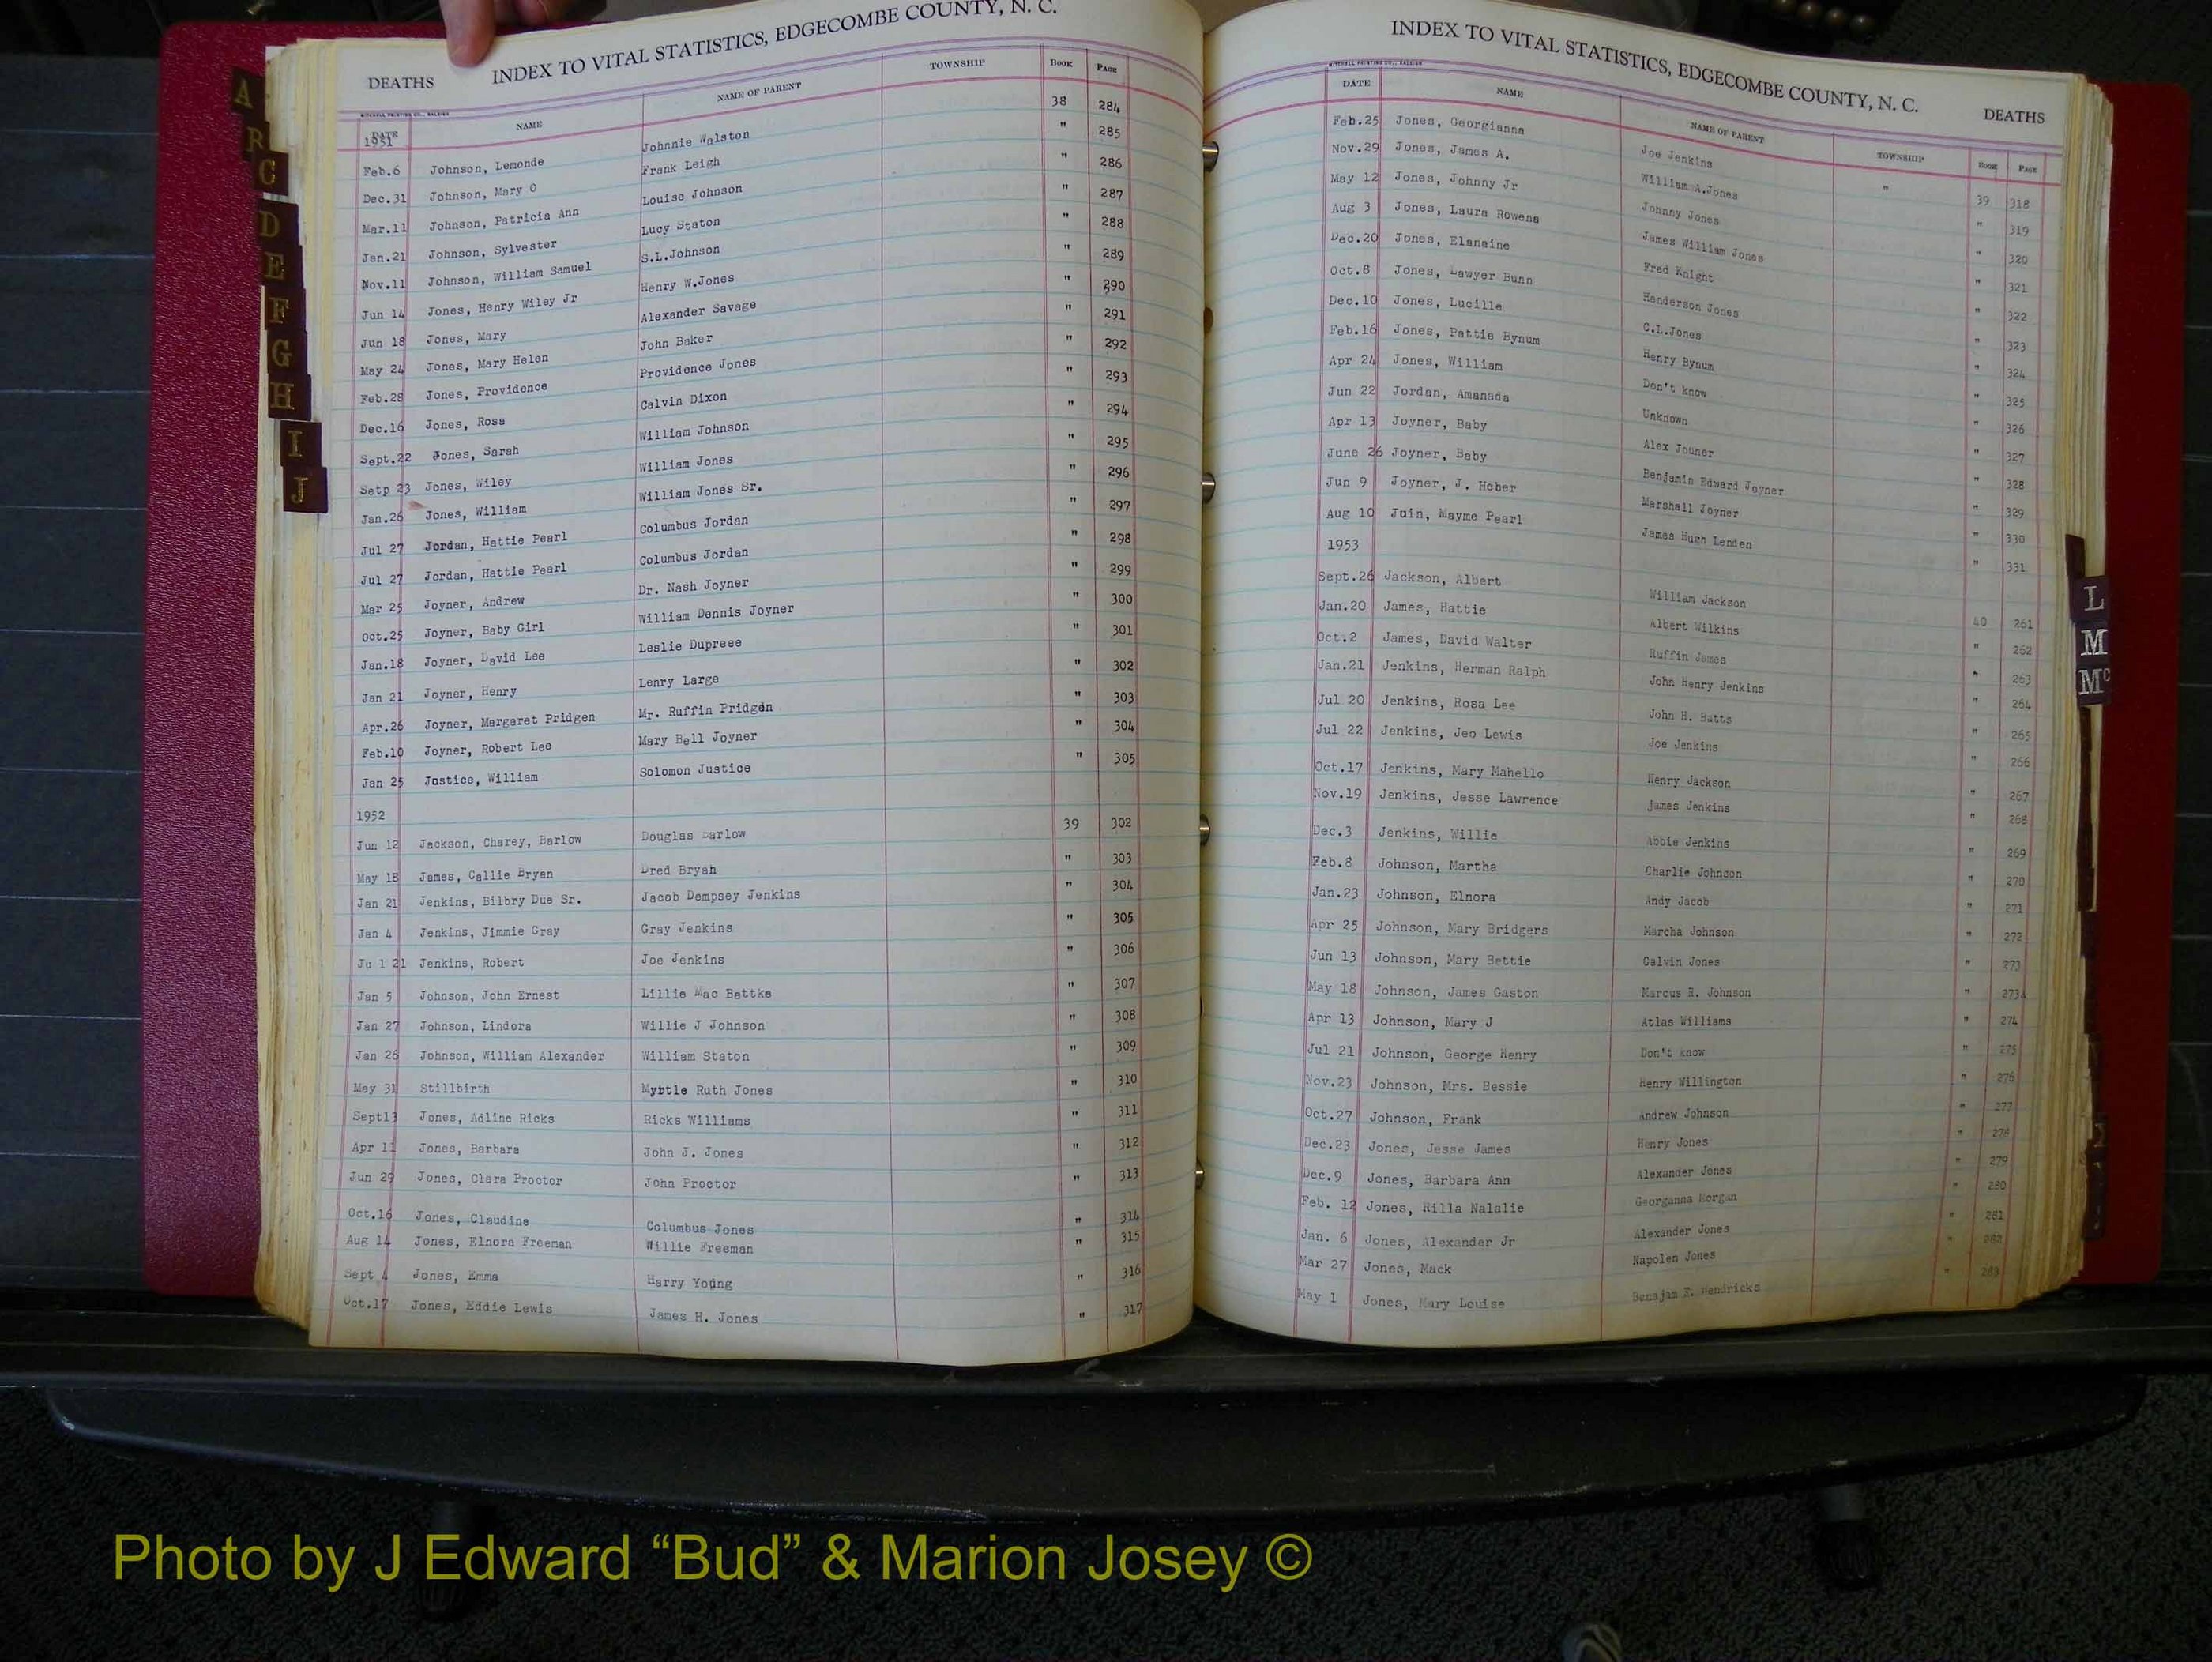 DEATHS INDEX TO VITAL STATISTICS, EDGECOMBE COUNTY, N. C.
MITCHELL PRINTING CO., RALEIGH
DATE NAME NAME OF PARENT TOWNSHIP BOOK PAGE
1951
Feb.6 Johnson, Lemonde Johnnie Walston 38 284
Dec.31 Johnson, Mary O Frank Leigh " 285
Mar.11 Johnson, Patricia Ann Louise Johnson " 286
Jan.21 Johnson, Sylvester Lucy Staton " 287
Nov.11 Johnson, William Samuel S.L.Johnson " 288
Jun 14 Jones, Henry Wiley Jr Henry W.Jones " 289
Jun 18 Jones, Mary Alexander Savage " 290
May 24 Jones, Mary Helen John Baker " 291
Feb.28 Jones, Providence Providence Jones " 292
Dec.16 Jones, Rosa Calvin Dixon " 293
Sept.22 Jones, Sarah William Johnson " 294
Setp 23 Jones, Wiley William Jones " 295
Jan.26 Jones, William William Jones Sr. " 296
Jul 27 Jordan, Hattie Pearl Columbus Jordan " 297
Jul 27 Jordan, Hattie Pearl Columbus Jordan " 298
Mar 25 Joyner, Andrew Dr. Nash Joyner " 299
Oct.25 Joyner, Baby Girl William Dennis Joyner " 300
Jan.18 Joyner, David Lee Leslie Dupreee " 301
Jan 21 Joyner, Henry Lenry Large " 302
Apr.26 Joyner, Margaret Pridgen Mr. Ruffin Pridgen " 303
Feb.10 Joyner, Robert Lee Mary Bell Joyner " 304
Jan 25 Justice, William Solomon Justice " 305
1952
Jun 12 Jackson, Charey, Barlow Douglas Barlow 39 302
May 18 James, Callie Bryan Dred Bryah " 303
Jan 21 Jenkins, Bilbry Due Sr. Jacob Dempsey Jenkins " 304
Jan 4 Jenkins, Jimmie Gray Gray Jenkins " 305
Ju l 21 Jenkins, Robert Joe Jenkins " 306
Jan 5 Johnson, John Ernest Lillie Mac Battke " 307
Jan 27 Johnson, Lindora Willie J Johnson " 308
Jan 26 Johnson, William Alexander William Staton " 309
May 31 Stillbirth Myrtle Ruth Jones " 310
Sept13 Jones, Adline Ricks Ricks Williams " 311
Apr 11 Jones, Barbara John J. Jones " 312
Jun 29 Jones, Clara Proctor John Proctor " 313
Oct.16 Jones, Claudine Columbus Jones " 314
Aug 14 Jones, Elnora Freeman Willie Freeman " 315
Sept 4 Jones, Emma Harry Young " 316
Oct.17 Jones, Eddie Lewis James H. Jones " 317
INDEX TO VITAL STATISTICS, EDGECOMBE COUNTY, N. C. DEATHS
MITCHELL PRINTING CO., RALEIGH
DATE NAME NAME OF PARENT TOWNSHIP BOOK PAGE
Feb.25 Jones, Georgianna Joe Jenkins " 39 318
Nov.29 Jones, James A. William A.Jones " 319
May 12 Jones, Johnny Jr Johnny Jones " 320
Aug 3 Jones, Laura Rowena James William Jones " 321
Dec.20 Jones, Elanaine Fred Knight " 322
Oct.8 Jones, Lawyer Bunn Henderson Jones " 323
Dec.10 Jones, Lucille C.L.Jones " 324
Feb.16 Jones, Pattie Bynum Henry Bynum " 325
Apr 24 Jones, William Don't know " 326
Jun 22 Jordan, Amanada Unknown " 327
Apr 13 Joyner, Baby Alex Jouner " 328
June 26 Joyner, Baby Benjamin Edward Joyner " 329
Jun 9 Joyner, J. Heber Marshall Joyner " 330
Aug 10 Juin, Mayme Pearl James Hugh Lenden " 331
1953
Sept.26 Jackson, Albert William Jackson 40 261
Jan.20 James, Hattie Albert Wilkins " 262
Oct.2 James, David Walter Ruffin James " 263
Jan.21 Jenkins, Herman Ralph John Henry Jenkins " 264
Jul 20 Jenkins, Rosa Lee John H. Batts " 265
Jul 22 Jenkins, Jeo Lewis Joe Jenkins " 266
Oct.17 Jenkins, Mary Mahello Henry Jackson " 267
Nov.19 Jenkins, Jesse Lawrence James Jenkins " 268
Dec.3 Jenkins, Willie Abbie Jenkins " 269
Feb.8 Johnson, Martha Charlie Johnson " 270
Jan.23 Johnson, Elnora Andy Jacob " 271
Apr 25 Johnson, Mary Bridgers Marcha Johnson " 272
Jun 13 Johnson, Mary Bettie Calvin Jones " 273
May 18 Johnson, James Gaston Marcus R. Johnson " 273A
Apr 13 Johnson, Mary J Atlas Williams " 274
Jul 21 Johnson, George Henry Don't know " 275
Nov.23 Johnson, Mrs. Bessie Henry Willington " 276
Oct.27 Johnson, Frank Andrew Johnson " 277
Dec.23 Jones, Jesse James Henry Jones " 278
Dec.9 Jones, Barbara Ann Alexander Jones " 279
Feb. 12 Jones, Rilla Nalalie Georganna Morgan " 280
Jan. 6 Jones, Alexander Jr Alexander Jones " 281
Mar 27 Jones, Mack Napolen Jones " 282
May 1 Jones, Mary Louise Benajam F. Hendricks " 283
A
C
D
E
F
G
H
I
J
L
M
Mc
Photo by J Edward “Bud” & Marion Josey ©